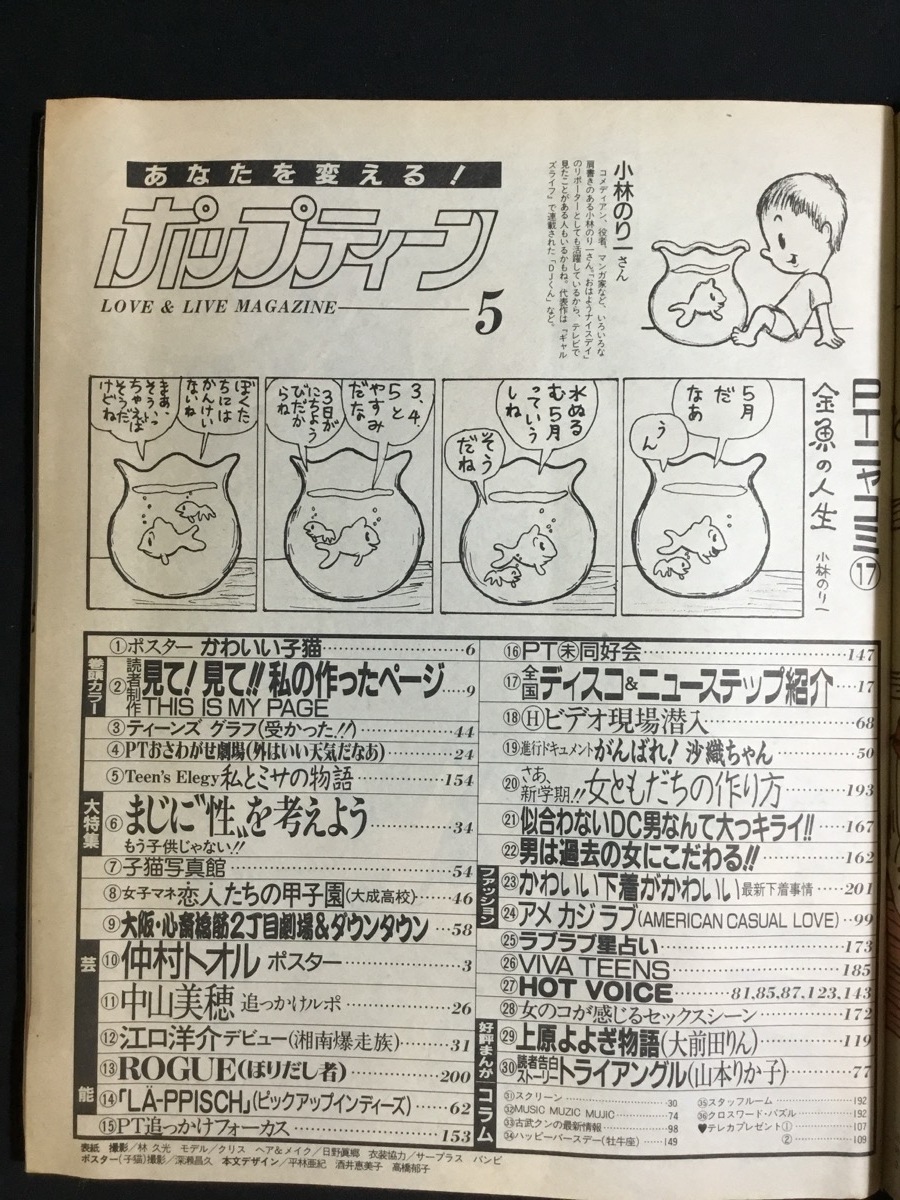 あなたを変える！
ポップティーン
LOVE & LIVE MAGAZINE
5
小林のり一さん
コメディアン、役者、マンガ家など、いろいろな
肩書きのある小林のり一さん。「おはようナイスデイ」
のリポーターとしても活躍しているから、テレビで
見たことがある人もいるかもね。代表作は「ギャル
ズライフ」で連載された「DJくん」など。
PTニャコミ⑰
金魚の人生
小林のり一
5月
だ
なあ
うん
水ぬる
む5月
っていう
しね
そう
だね
3、4、
5と
やすみ
だな
3日が
にちよう
びだか
らね
ぼくた
ちには
かんけい
ないね
まあ、
そういっ
ちゃえば
そうだ
けどね
巻頭カラー
①ポスター かわいい子猫 6
②読者制作 見て！見て!! 私の作ったページ 9
THIS IS MY PAGE
③ティーンズ グラフ(受かった!!) 44
④PTおさわがせ劇場(外はいい天気だなあ) 24
⑤Teen's Elegy 私とミサの物語 154
大特集
⑥まじに〝性〟を考えよう 34
もう子供じゃない!!
⑦子猫写真館 54
⑧女子マネ恋人たちの甲子園(大成高校) 46
⑨大阪・心斎橋筋2丁目劇場&ダウンタウン 58
芸能
⑩仲村トオル ポスター 3
⑪中山美穂 追っかけルポ 26
⑫江口洋介デビュー(湘南爆走族) 31
⑬ROGUE(ほりだし者) 200
⑭「LÄ-PPISCH」(ピックアップインディーズ) 62
⑮PT追っかけフォーカス 153
⑯PT㊍同好会 147
⑰全国ディスコ&ニューステップ紹介 17
⑱Ⓗビデオ現場潜入 68
⑲進行ドキュメントがんばれ！沙織ちゃん 50
⑳さあ、新学期!! 女ともだちの作り方 193
㉑似合わないDC男なんて大っキライ!! 167
㉒男は過去の女にこだわる!! 162
ファッション
㉓かわいい下着がかわいい最新下着事情 201
㉔アメカジラブ(AMERICAN CASUAL LOVE) 99
㉕ラブラブ星占い 173
㉖VIVA TEENS 185
㉗HOT VOICE 81,85,87,123,143
㉘女のコが感じるセックスシーン 172
好評まんが
㉙上原よよぎ物語(大前田りん) 119
㉚読者告白ストーリートライアングル(山本りか子) 77
コラム
㉛スクリーン 30
㉜MUSIC MUZIC MUJIC 74
㉝古武クンの最新情報 98
㉞ハッピーバースデー(牡牛座) 149
㉟スタッフルーム 192
㊱クロスワード・パズル 192
♥テレカプレゼント① 107
② 109
表紙 撮影／林 久光 モデル／クリス ヘア&メイク／日野眞郷 衣装協力／サープラス バンビ
ポスター(子猫)撮影／深瀬昌久 本文デザイン／平林亜紀 酒井恵美子 高橋郁子